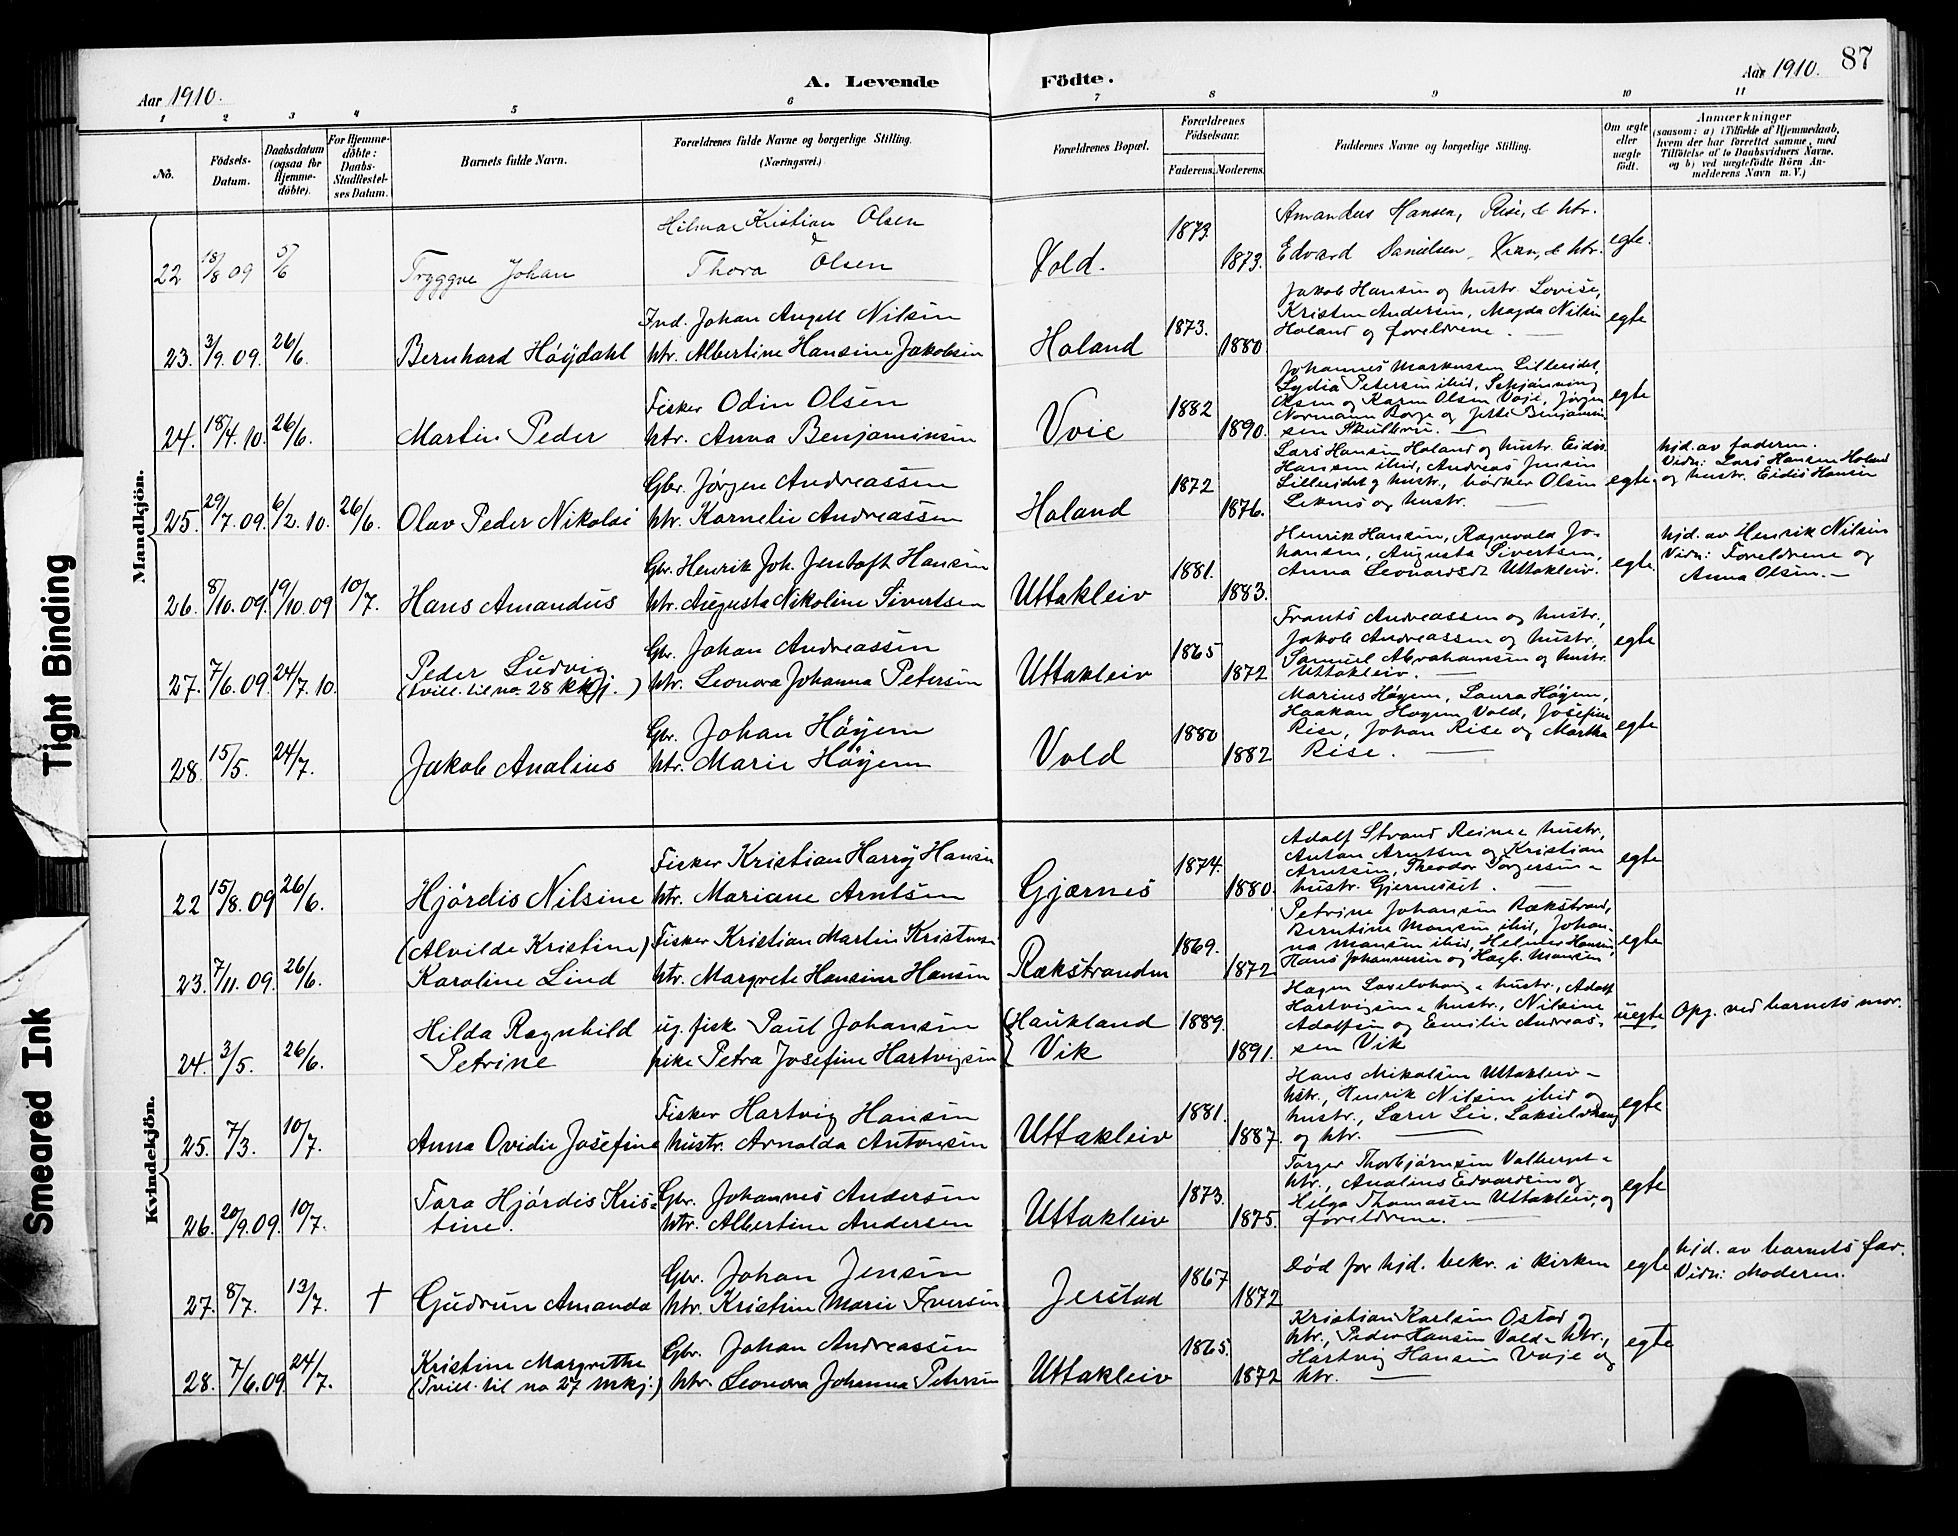 Aar 1910.
A. Levende Födte.
Aar 1910. 87
1 2 3 4 5 6 7 8 9 10 11
No.
Födsels-
Datum.
Daabsdatum
(ogsaa for
Hjemme-
döbte).
For Hjemme-
döbte:
Daabs-
Stadfæstel-
ses Datum.
Barnets fulde Navn.
Forældrenes fulde Navne og borgerlige Stilling.
(Næringsvei.)
Forældrenes Bopæl.
Forældrenes
Födselsaar.
Faderens. Moderens.
Faddernes Navne og borgerlige Stilling.
Om ægte
eller
uægte
født.
Anmærkninger
(saasom: a) i Tilfælde af Hjemmedaab,
hvem der har forrettet samme, med
Tilföielse af to Daabsvidners Navne,
og b) ved uægtefödte Börn An-
melderens Navn m. V.)
Mandkjön.
Hilmar Kristian Olsen 1873 Amandus Hansen, Rise, & htr.
22 18/8 09 5/6 Tryggve Johan & Thora Olsen Vold. 1873. Edvard Danielsen, & htr. egte.
Jakob Hansen og hustr. Lovise,
Ind. Johan Angell Nilsen 1873. Kristen Andersen, Magda Nilsen
23. 3/9. 09. 26/6. Bernhard Höydahl htr. Albertine Hansine Jakobsen Holand 1880 Holand og foreldrene. egte
Johannes Markussen Lilleeidet,
Lydia Petersen ibid, Schjånning
Fisker Odin Olsen 1882 Olsen og Karen Olsen Voje, Jørgen
Normann Borge og Jette Benjamin-
24. 18/4. 10. 26/6. Martin Peder htr. Anna Benjaminsen Voie 1890. sen Skulbru. egte
Lars Hansen Holand og hustr. Eidis hjd. av faderen.
Hansen ibid, Andreas Jensen Vidn: Lars Hansen Holand
Gbr. Jörgen Andreassen 1872 Lilleeidet og hustr., Olsen og hustr. Eidis Hansen
25. 29/7. 09. 6/2. 10. 26/6. Olav Peder Nikolai htr. Kornelie Andreassen Holand 1876. Leknes og hustr. egte.
Henrik Hansen, Ragnvald Jo- hjd. av Henrik Nilsen
hansen, Augusta Sivertsen, Vidn: Foreldrene og
Gbr. Henrik Joh. Jentoft Hansen 1881. Anna Leonardsdt Uttakleiv. Anna Olsen.
26. 8/10. 09. 19/10. 09 10/7. Hans Amandus htr. Augusta Nikoline Sivertsen Uttakleiv 1883. egte.
Frants Andreassen og hustr.,
Gbr. Johan Andreassen 1865 Jakob Andreassen og hustr.,
Peder Ludvig Samuel Abrahamsen og hustr.
27. 7/6. 09. 24/7. 10. (tvill. til no 28 kkj.) htr. Leonora Johanna Petersen Uttakleiv 1872 Uttakleiv. egte
Marius Höyem, Laura Höyem,
Gbr. Johan Höyem 1880 Haakan Hoyem Vold, Josefine
Rise, Johan Rise og Martha
28. 15/5. 24/7. Jakob Analius htr. Marie Höyem Vold 1882 Rise. egte
Kvindekjön.
Adolf Strand Reine & hustr,
Fisker Kristian Harry Hansen 1874. Anton Arntsen og Kristian
Arntsen, Theodor Torgersen &
22 15/8. 09 26/6. Hjördis Nilsine htr. Mariane Arntsen Gjærnes 1880. hustr. Gjernesset. egte
Petrine Johansen Rækstrand,
(Alvilde Kristine) Fisker Kristian Martin Kristensen 1869. Berntine Monsen ibid, Johan-
na Monsen ibid, Helmer Hansen,
23. 7/11. 09. 26/6. Karoline Lind htr. Margrete Hansine Hansen Rækstranden 1872 Hans Johannesen og Hagb. Monsen egte
Hagen & hustr., Adolf
Hilda Ragnhild ug. fisk. Paul Johansen Haukland 1889. Hartvigsen & hustr., Nilsine
Adolfsen og Emilie Andreas- uegte Opg. ved barnets mor.
24. 3/5. 26/6. Petrine pike Petra Josefine Hartvigsen Vik 1891. sen Vik
Hans Mikalsen Uttakleiv &
Fisker Hartvig Hansen 1881. hstr., Henrik Nilsen ibid og
hustr., Lærer Lie,
25. 7/3. 10/7. Anna Ovidie Josefine hustr. Arnolda Antonsen Uttakleiv 1887. og htr. egte
Torger Thorbjørnsen Valberget &
Tora Hjórdis Kris- Gbr. Johannes Andersen 1873. htr., Analius Edvardsen og
Helga Thomassen Uttakleiv, og
26. 20/9. 09. 10/7. tine. htr. Albertine Andersen Uttakleiv 1875. foreldrene. egte
Gbr. Johan Jensen 1867 Død før hjd. bekr. i kirken egte hjd. av barnets far.
27. 8/7. 13/7. † Gudrun Amanda htr. Kristine Marie Iversen Jerstad 1872 Vidn: Moderen.
Kristian Karlsen Ostad og
Kristine Margrethe Gbr. Johan Andreassen 1865. htr., Peder Hansen Vold & htr.,
Hartvig Hansen Voje og
28. 7/6. 09 24/7. (Tvill. til no 27 mkj.) htr. Leonora Johanna Petersen Uttakleiv 1872 htr. egte
Tight Binding
Smeared Ink